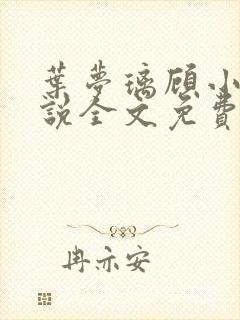 葉夢璃顾小
說全文免費
冉亦安